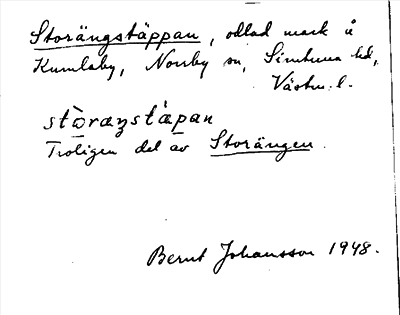 Storängstäppan, odlad mark å
Kumlaby, Norrby sn, Simtuna hd,
Västm. l.
stòræŋstàpan
Troligen del av Storängen.
Bernt Johansson 1948.